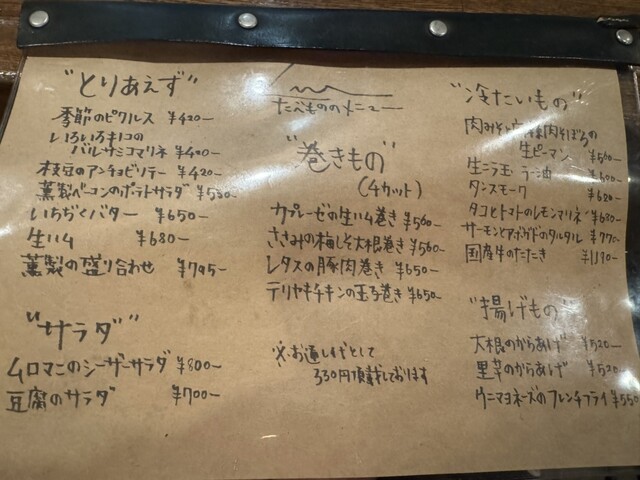 "とりあえず"
季節のピクルス ¥420-
いろいろキノコの
バルサミコマリネ ¥420-
枝豆のアンチョビソテー ¥420-
薫製ベーコンのポテトサラダ ¥580-
いちぢくバター ¥650-
生ハム ¥680-
薫製の盛り合わせ ¥795-
"サラダ"
ムロマニのシーザーサラダ ¥800-
豆腐のサラダ ¥700-
たべもののメニュー
"巻きもの"
(4カット)
カプレーゼの生ハム巻き ¥560-
ささみの梅しそ大根巻き ¥560-
レタスの豚肉巻き ¥650-
テリヤキチキンの玉子巻き ¥650-
※お通し代として
330円頂戴しております
"冷たいもの"
肉みそと
生ピーマン ¥560-
生ニラ玉 ラー油
タンスモーク ¥620-
タコとトマトのレモンマリネ ¥680-
サーモンとアボガドのタルタル ¥770-
国産牛のたたき ¥1190-
"揚げもの"
大根のからあげ ¥520-
里芋のからあげ ¥520-
ウニマヨネーズのフレンチフライ ¥550